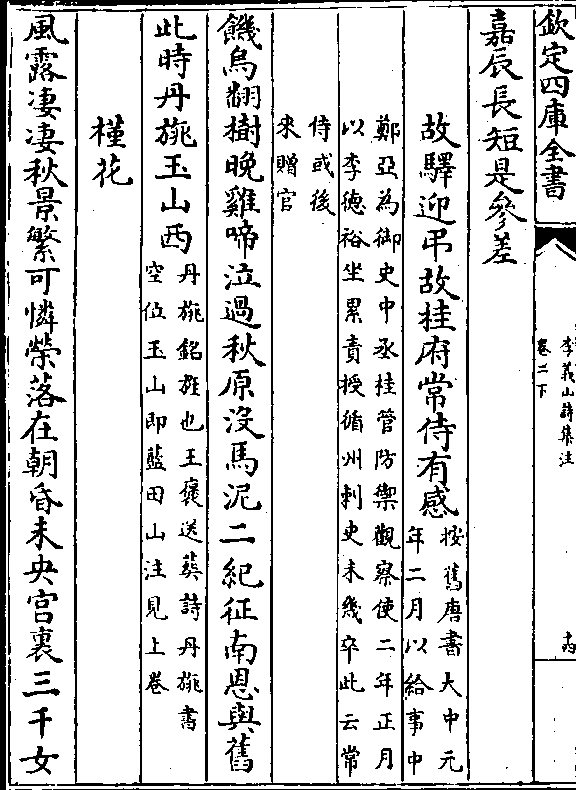 欽定四庫全書
李義山詩集注
卷二下
嘉辰長短是參差
故驛迎弔故桂府常侍有感
按舊唐書大中元
年二月以給事中
鄭亞為御史中丞桂管防禦觀察使二年正月
以李德裕坐累責授循州刺史未幾卒此云常
侍或後
來贈官
饑烏翻樹晚雞啼泣過秋原沒馬泥二紀征南恩與舊
此時丹旐玉山西
丹旐銘旌也王褒送葬詩丹旐書
空位玉山即藍田山注見上卷
槿花
風露凄凄秋景繁可憐榮落在朝昏未央宫裏三千女